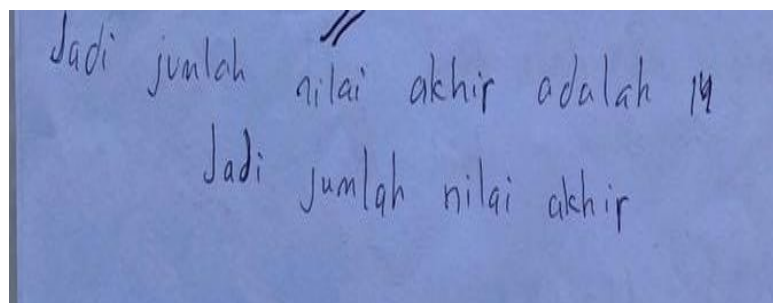 Jadi jumlah nilai akhir adalah 14
Jadi jumlah nilai akhir